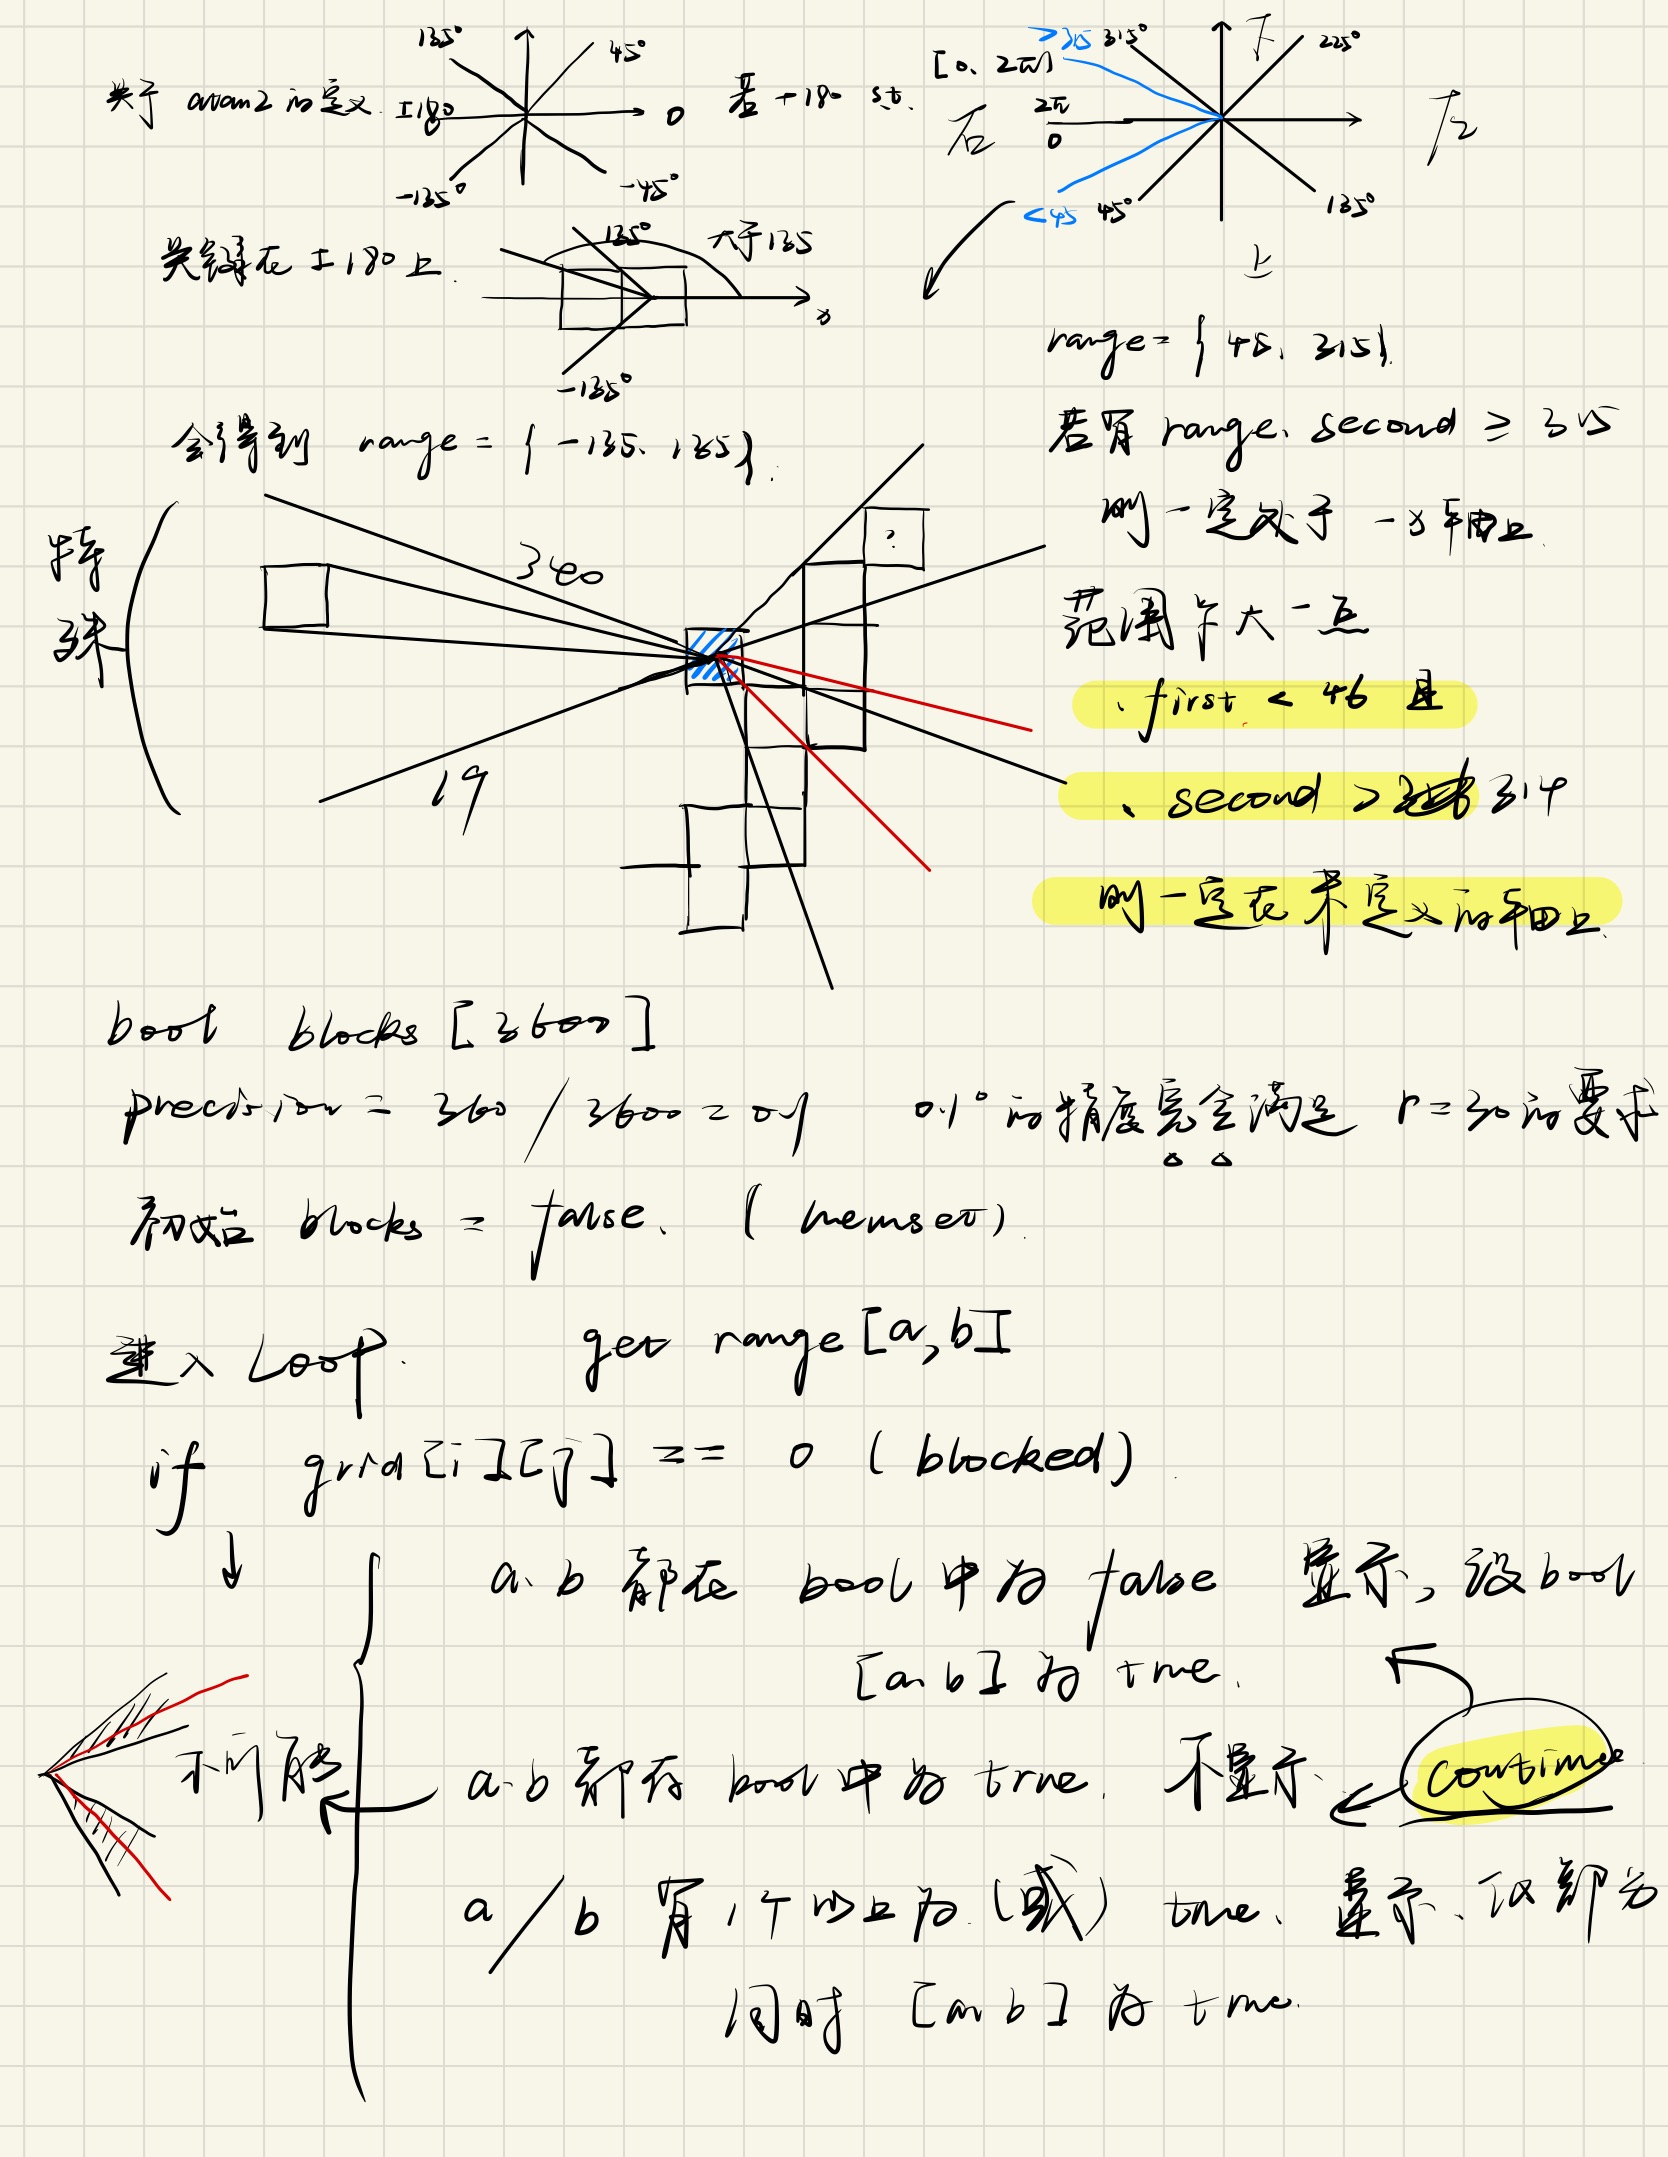 135° 45°
关于 atan2 的定义. ±180 0
-135° -45°
若 +180 s.t. [0、2π)
>315 315° 下 225°
右 2π 0 左
<45 45° 上 135°
关键在 ±180上.
135° 大于135
x
-135°
会得到 range = { -135、135}.
range = { 45、315}.
若有 range、second ≥ 315
则一定处于 -x轴上.
范围卡大一点
、first < 46 且
、second > 314
则一定在未定义的轴上.
特殊
340
?
19
bool blocks [3600]
precision = 360 / 3600 = 0.1 0.1°的精度完全满足 r=30的要求
初始 blocks = false、 ( memset).
进入 Loop. get range [a, b]
if grid[i][j] == 0 ( blocked).
a、b 都在 bool 中为 false 显示, 设bool
[a、b] 为 true.
不可能 a、b 都在 bool 中为 true. 不显示、 continue
a / b 有1个以上为(或) true、显示、仅部分
同时 [a、b] 为 true.